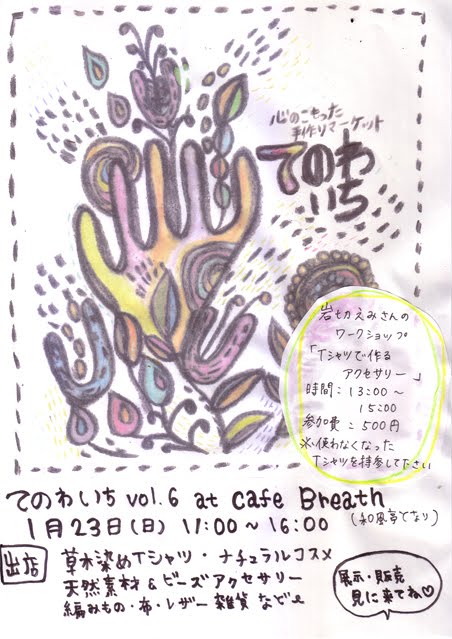 心のこもった
手作りマーケット
てのわ
いち
岩切えみさんの
ワークショップ
「Tシャツで作る
アクセサリー」
時間:13:00〜
15:00
参加費:500円
※使わなくなった
Tシャツを持参して下さい
てのわいち vol.6 at cafe Breath
(和風亭となり)
1月23日(日) 11:00〜16:00
出店
草木染めTシャツ・ナチュラルコスメ
天然素材&ビーズアクセサリー
編みもの・布・レザー雑貨 などe
展示・販売
見に来てね♡